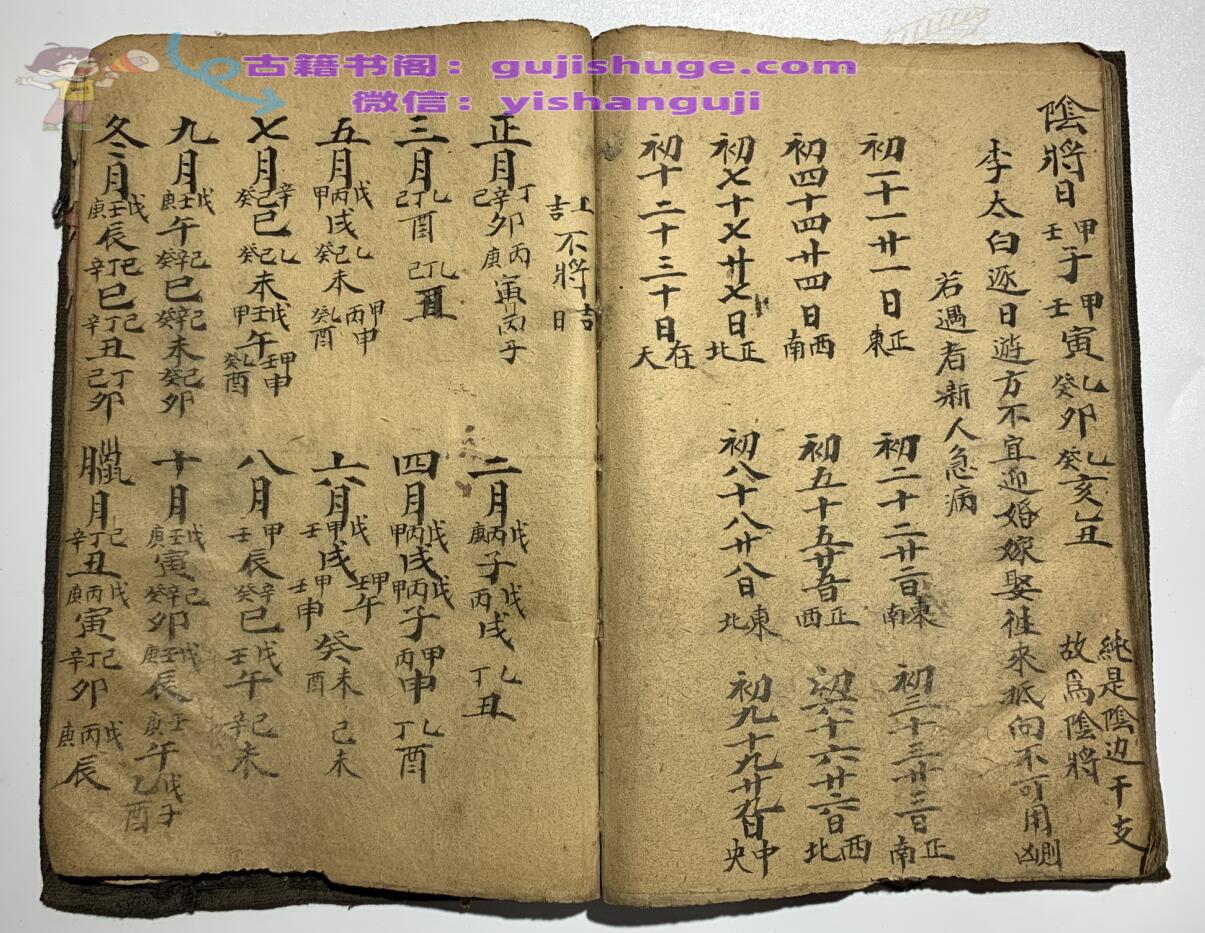 古籍书阁：gujishuge.com
微信：yishanguji
陰將日 甲壬子 甲壬寅 乙癸卯 乙癸亥 乙丑
純是陰边干支
故爲陰將
李太白逐日遊方不宜迎婚嫁娶往來抵向不可用則凶
若遇者新人急病
初一十一廿一日正東
初二十二廿二日東南
初三十三廿三日正南
初四十四廿四日西南
初五十五廿五日正西
初六十六廿六日西北
初七十七廿七日正北
初八十八廿八日東北
初九十九廿九日中央
初十二十三十日在天
上吉不將吉日
正月 丁辛己卯 丙庚寅 丙子
二月 戊丙庚子 戊丙戌 乙丁丑
三月 乙丁己酉 乙丁己丑
四月 戊丙甲戌 戊丙甲子 甲丙申 乙丁酉
五月 戊丙甲戌 乙己癸未 甲丙申 乙癸酉
六月 戊甲壬戌 甲壬午 甲壬申 癸未 酉 己未
七月 辛己癸巳 乙己癸未 戊壬甲午 甲壬申 乙癸酉
八月 甲壬辰 辛癸巳 戊壬午 己辛未
九月 戊壬庚午 己辛癸巳 己辛癸未 己癸卯
十月 戊壬庚寅 己辛癸卯 戊壬庚辰 壬庚午 戊子 乙酉
冬月 戊壬庚辰 己丁辛巳 己丁辛丑 丁己卯
臘月 己丁辛丑 戊丙庚寅 己丁辛卯 戊丙庚辰